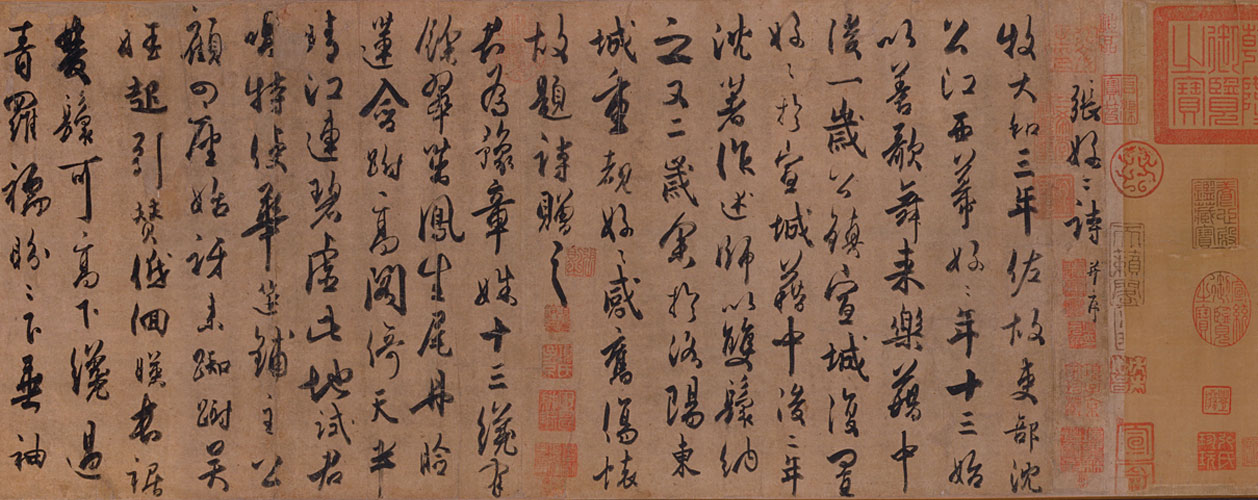 張好〻詩 并序
牧大和三年佐故吏部沈
公江西幕好〻年十三始
以善歌舞来樂籍中
後一歲公鎮宣城復置
好〻於宣城籍中後二年
沈著作述師以雙鬟納
之又二歲余於洛陽東
城重覩好〻感舊傷懷
故題詩贈之
君為豫章姝十三纔有
餘翠茁鳳生尾丹臉
蓮含跗高閣倚天半
晴江連碧虛此地試君
唱特使華筵鋪主公
顧四座始訝来踟躕吳
娃起引贊低佪暎長裾
雙鬟可高下纔過
青羅襦盼〻下垂袖